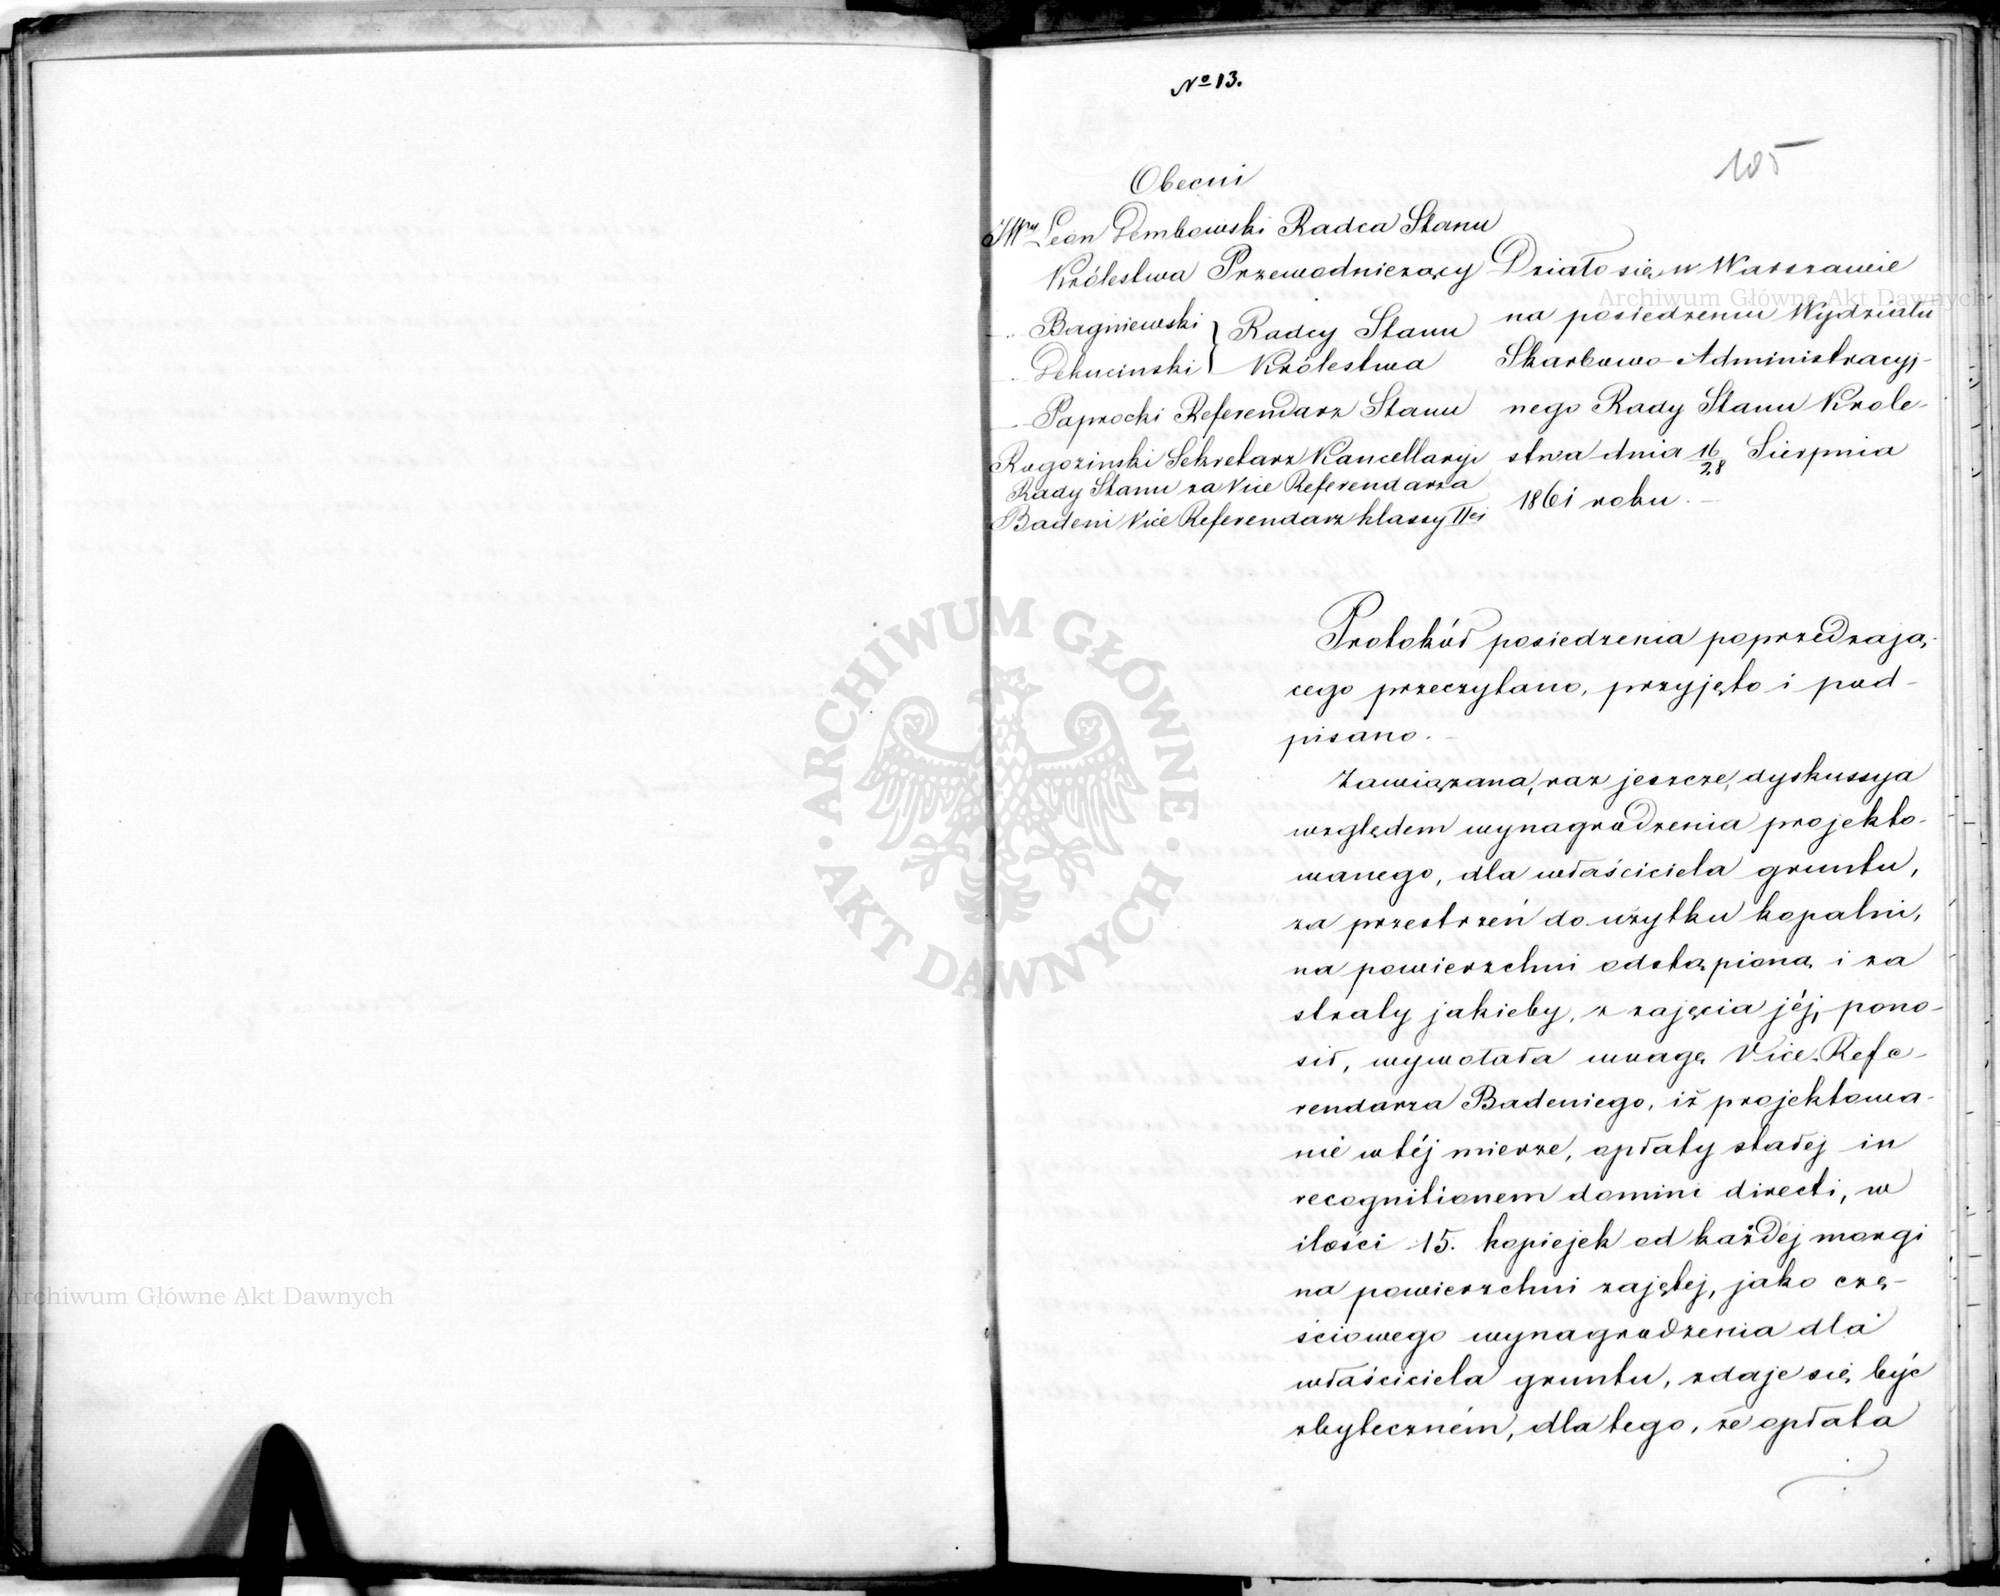 No 13.
105
Obecni
JWny Leon Dembowski Radca Stanu
Królestwa Przewodniczący
" Bagniewski } Radcy Stanu
" Dekucinski } Królestwa
" Paprocki Referendarz Stanu
Rogozinski Sekretarz Kancellaryi
Rady Stanu za Vice Referendarza
Badeni Vice Referendarz klassy IIej
Działo się w Warszawie
na posiedzeniu Wydziału
Skarbowo-Administracyj-
nego Rady Stanu Króle-
stwa dnia 16/28 Sierpnia
1861 roku. —
Protokół posiedzenia poprzedzają-
cego przeczytano, przyjęto i pod-
pisano. —
Zawiązana, raz jeszcze, dyskussya
względem wynagrodzenia projekto-
wanego, dla właściciela gruntu,
za przestrzeń do użytku kopalni,
na powierzchni odstąpioną i za
straty jakieby, z zajęcia jéj, pono-
sił, wywołała uwagę Vice-Refe-
rendarza Badeniego, iż projektowa-
nie w téj mierze, opłaty stałej in
recognitionem domini directi, w
ilości 15. kopiejek od każdéj morgi
na powierzchni zajętej, jako czę-
ściowego wynagrodzenia dla
właściciela gruntu, zdaje się być
zbyteczném, dla tego, że opłata
Archiwum Główne Akt Dawnych
Archiwum Główne Akt Dawnych
ARCHIWUM GŁÓWNE · AKT DAWNYCH ·